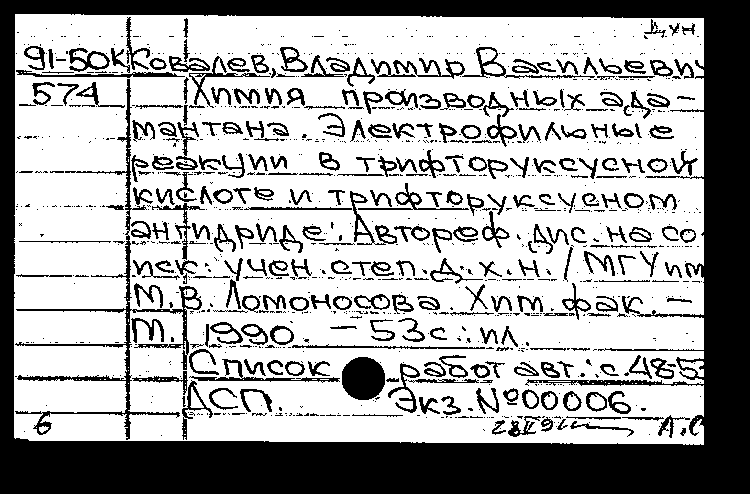 Д, хн
91-50к Ковалев, Владимир Васильевич
574 Химия производных ада-
мантана. Электрофильные
реакции в трифторуксусной
кислоте и трифторуксусном
ангидриде: Автореф. дис. на со
иск. учен. степ. д. х. н. / МГУ им
М. В. Ломоносова. Хим. фак. —
М. 1990. — 53 с.: ил.
Список работ авт.: с. 48-53
ДСП. Экз. №00006.
6 А.С